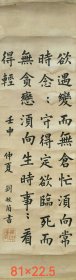 欲遇變而無倉忙須向常
時念々守得定欲臨死而
無貪戀須向生時事々看
得輕
壬申 仲夏 劉 書
81×22.5